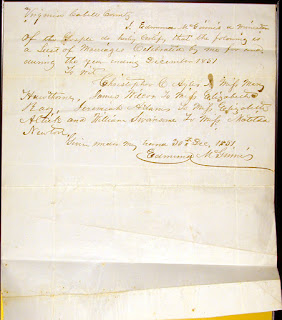 Virginia Cabell County
I, Edmund McGinnis a minister
Of the Gospel do hereby certify, that the following is
a List of Marriages Celebrated by me
during the year ending December 1851
To Wit
Christopher C. to Miss Mary
Hawthorn, James to Miss Elizabeth
Hay, Jeremiah Adams to Miss Elizabeth
and William Swanann To Miss
Newton
Given under my hand 30th Dec. 1851,
Edmund McGinnis